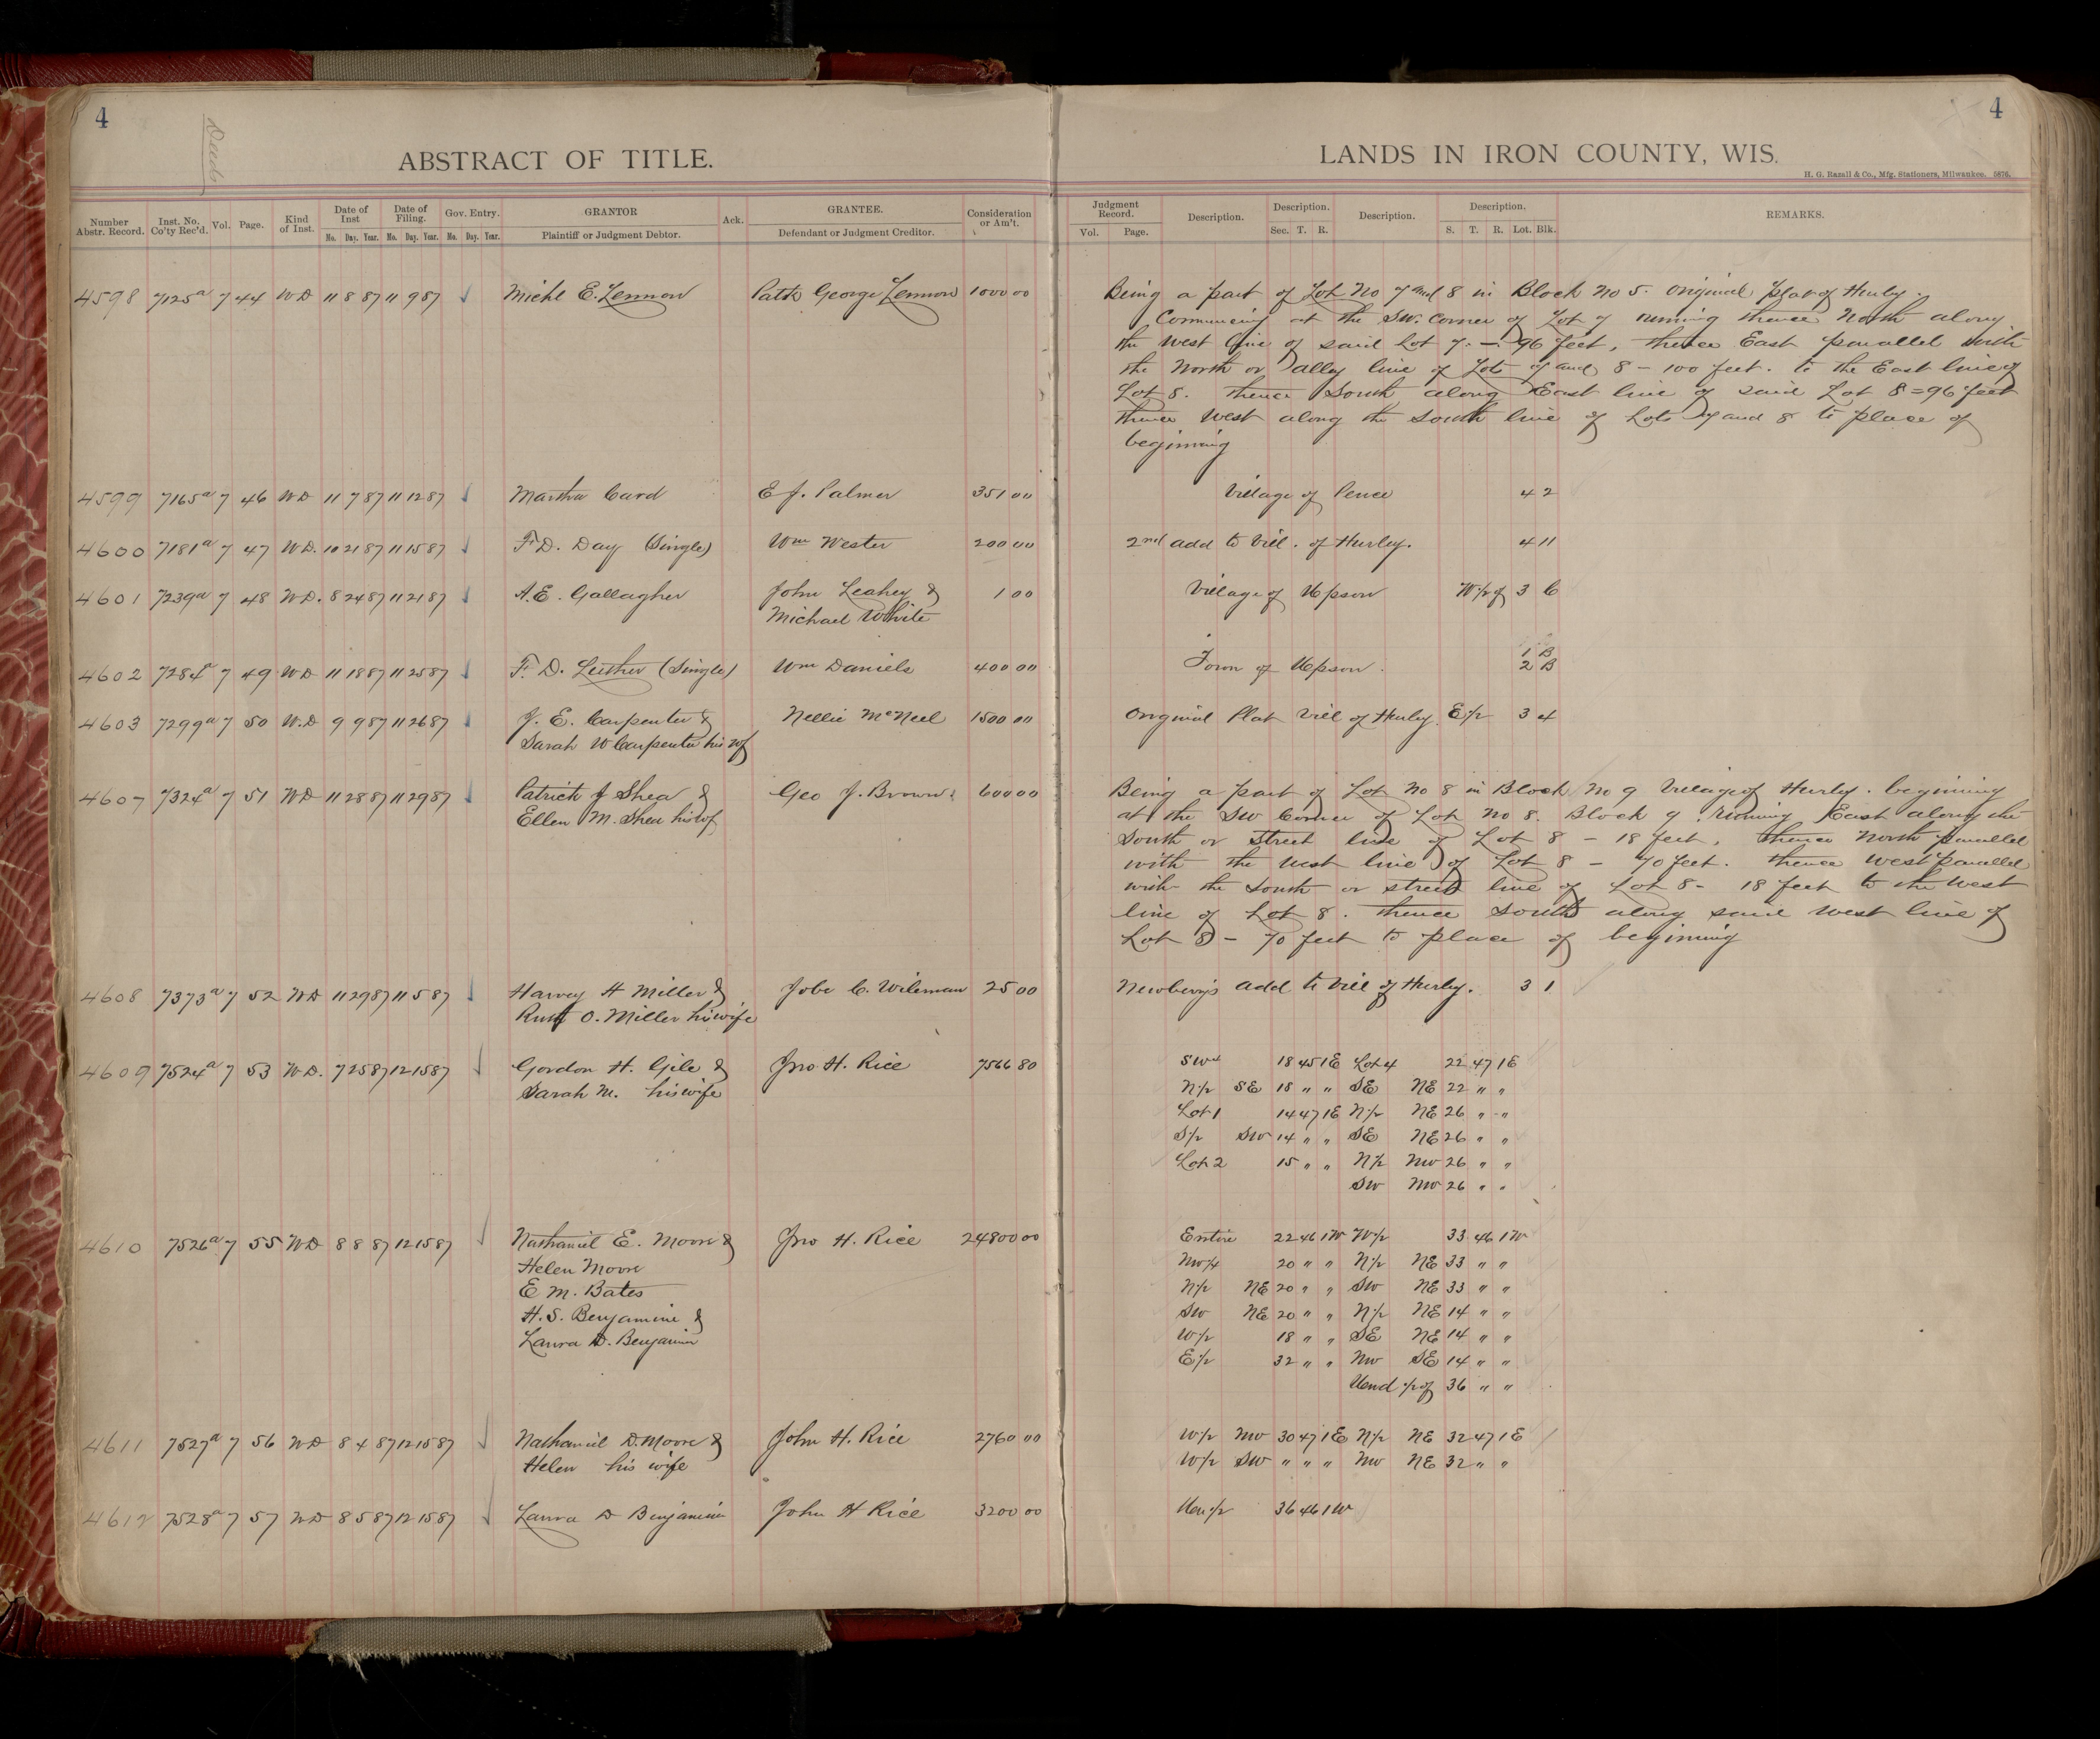 4
Deeds
ABSTRACT OF TITLE.
Number Abstr. Record. Inst. No. Co'ty Rec'd. Vol. Page. Kind of Inst. Date of Inst Mo. Day. Year. Date of Filing. Mo. Day. Year. Gov. Entry. Mo. Day. Year. GRANTOR Plaintiff or Judgment Debtor. Ack. GRANTEE. Defendant or Judgment Creditor. Consideration or Am't.
4598 7125a 7 44 WD 11 8 87 11 9 87 Michl E. Lennon Patk George Lennon 1000 00
4599 7165a 7 46 WD 11 7 87 11 12 87 Martha Card E J. Palmer 351 00
4600 7181a 7 47 WD. 10 21 87 11 15 87 F. D. Day (Single) Wm Wester 200 00
4601 7239a 7 48 WD. 8 24 87 11 21 87 A. E. Gallagher John Leahey &
Michael White 1 00
4602 7284a 7 49 WD 11 18 87 11 25 87 F. D. Luther (Single) Wm Daniels 400 00
4603 7299a 7 50 W.D 9 9 87 11 26 87 J. E. Carpenter & Nellie McNeel 1500 00
Sarah W Carpenter his wf
4607 7324a 7 51 WD 11 28 87 11 29 87 Patrick J Shea & Geo J. Brown 600 00
Ellen M. Shea his wf
4608 7373a 7 52 WD 11 29 87 11 5 87 Harvey H Miller & Jobe C. Wileman 25 00
O. Miller his wife
4609 7524a 7 53 WD. 7 25 87 12 15 87 Gordon H. Gile & Jno H. Rice 7566 80
Sarah M. his wife
4610 7526a 7 55 WD 8 8 87 12 15 87 Nathaniel E. Moore & Jno H. Rice 24800 00
Helen Moore
E M. Bates
H. S. Benjamine &
Laura D. Benjamin
4611 7527a 7 56 WD 8 4 87 12 15 87 Nathaniel D. Moore & John H. Rice 2760 00
Helen his wife
4612 7528a 7 57 WD 8 5 87 12 15 87 Laura D Benjamin John H Rice 3200 00
4
LANDS IN IRON COUNTY, WIS.
H. G. Razall & Co., Mfg. Stationers, Milwaukee. 5876.
Judgment Record. Vol. Page. Description. Description. Sec. T. R. Description. Description. S. T. R. Lot. Blk. REMARKS.
Being a part of Lot No 7 and 8 in Block No 5. original plat of Hurley.
Commencing at the SW. Corner of Lot 7 running thence North along
the West line of said Lot 7. — 96 feet, thence East parallel with
the North or alley line of Lots 7 and 8 – 100 feet. to the East line of
Lot 8. thence South along East line of said Lot 8 = 96 feet
thence West along the South line of Lots 7 and 8 to place of
beginning
Village of Pence 4 2
2nd add to Vill. of Hurley. 4 11
Village of Upson W 1/2 of 3 C
Town of Upson 1 B
2 B
Original Plat Vill of Hurley E 1/2 3 4
Being a part of Lot No 8 in Block No 9 Village of Hurley. beginning
at the SW Corner of Lot No 8. Block 9. running East along the
South or Street line of Lot 8 – 18 feet, thence North parallel
with the West line of Lot 8 – 70 feet. thence West parallel
with the South or street line of Lot 8 – 18 feet to the West
line of Lot 8. thence South along said West line of
Lot 8 – 70 feet to place of beginning
Newberry's add to Vill of Hurley. 3 1
SW 18 45 1E Lot 4 22 47 1E
N 1/2 SE 18 " " SE NE 22 " "
Lot 1 14 47 1E N 1/2 NE 26 " "
S 1/2 SW 14 " " SE NE 26 " "
Lot 2 15 " " N 1/2 NW 26 " "
SW NW 26 " "
Entire 22 46 1W W 1/2 33 46 1W
NW 1/4 20 " " N 1/2 NE 33 " "
N 1/2 NE 20 " " SW NE 33 " "
SW NE 20 " " N 1/2 NE 14 " "
W 1/2 18 " " SE NE 14 " "
E 1/2 32 " " NW SE 14 " "
Und 1/2 of 36 " "
W 1/2 NW 30 47 1E N 1/2 NE 32 47 1E
W 1/2 SW " " " NW NE 32 " "
Un 1/2 36 46 1W